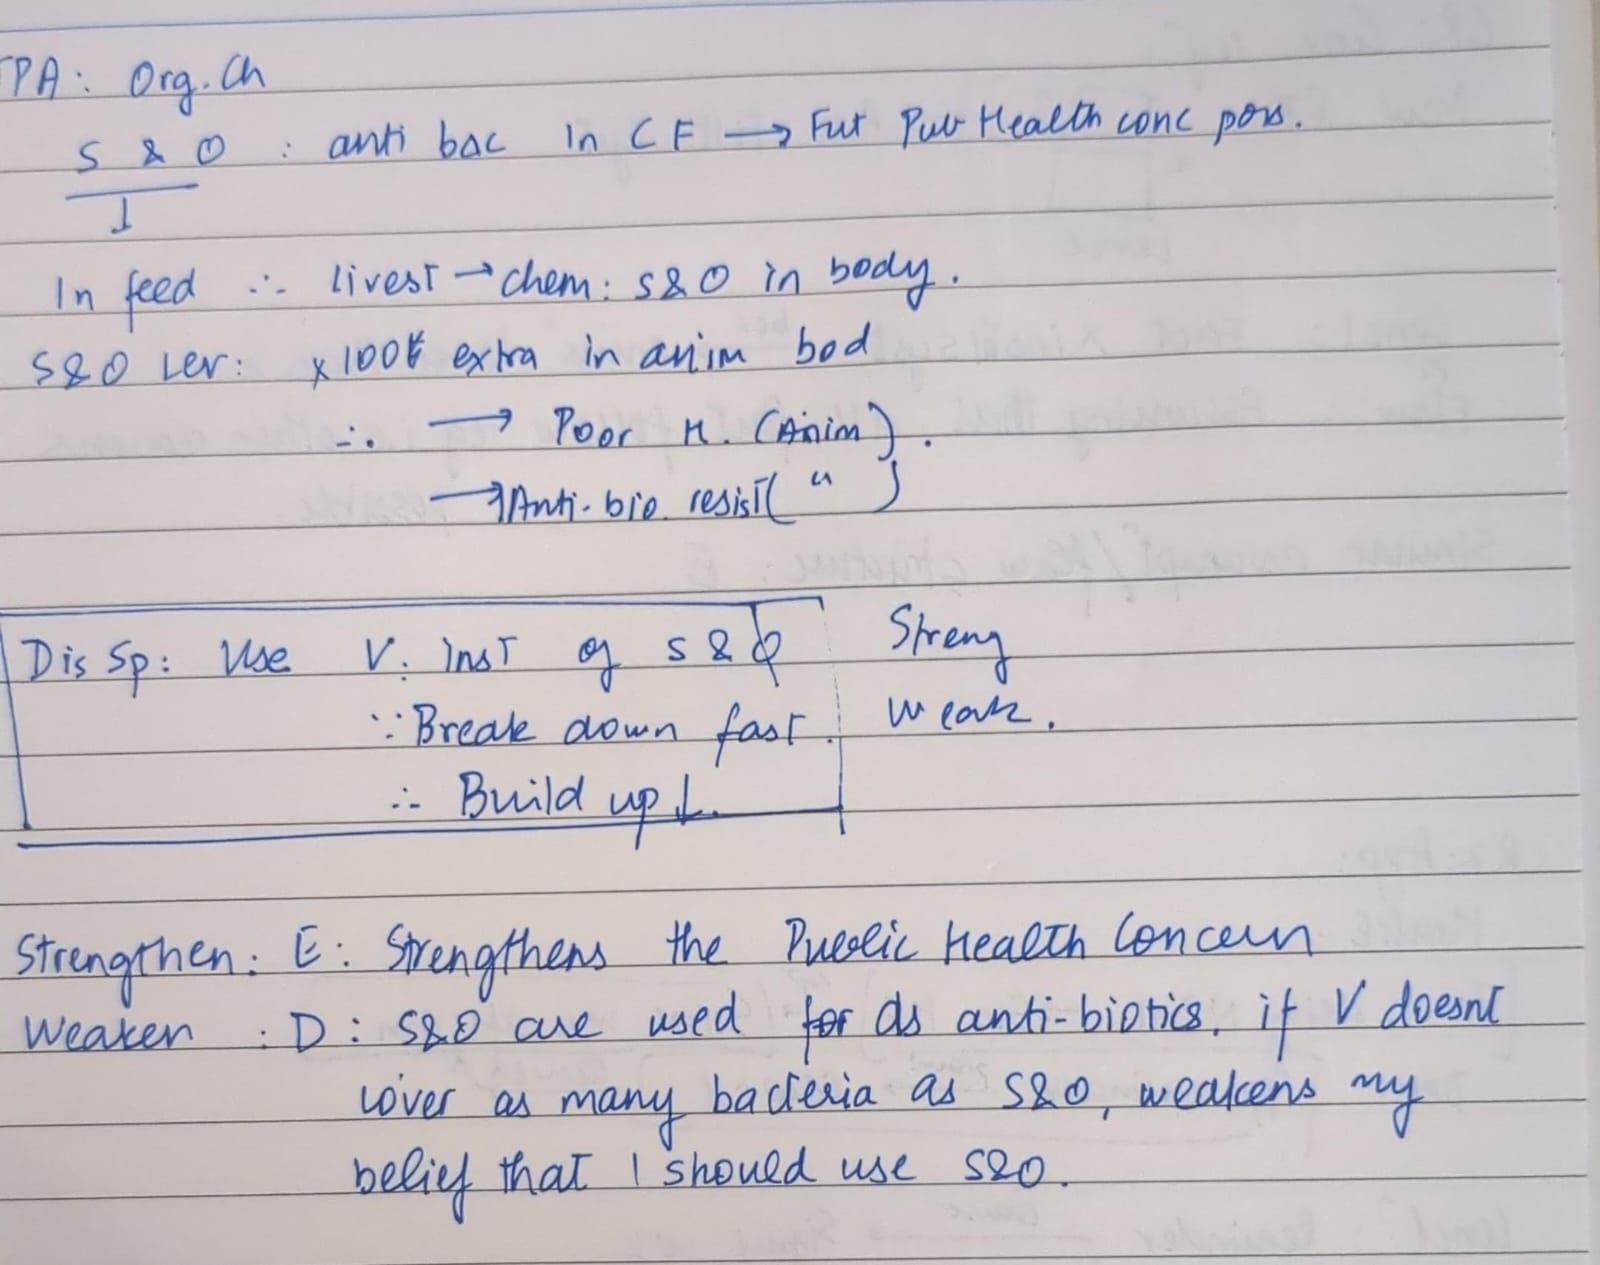 TPA: Org. Ch
S & O : anti bac in CF → Fut Pub Health conc poss.
I
In feed ∴ livest → chem: S&O in body.
S&O Lev: x100% extra in anim bod
∴ → Poor H. (Anim).
→ Anti-bio. resist( " )
Dis Sp: Use V. inst of S & O Streng
∵ Break down fast. Weak.
∴ Build up ↓.
Strengthen: E: Strengthens the Public Health Concern
Weaken : D: S&O are used for as anti-biotics. if V doesnt
cover as many bacteria as S&O, weakens my
belief that I should use S&O.